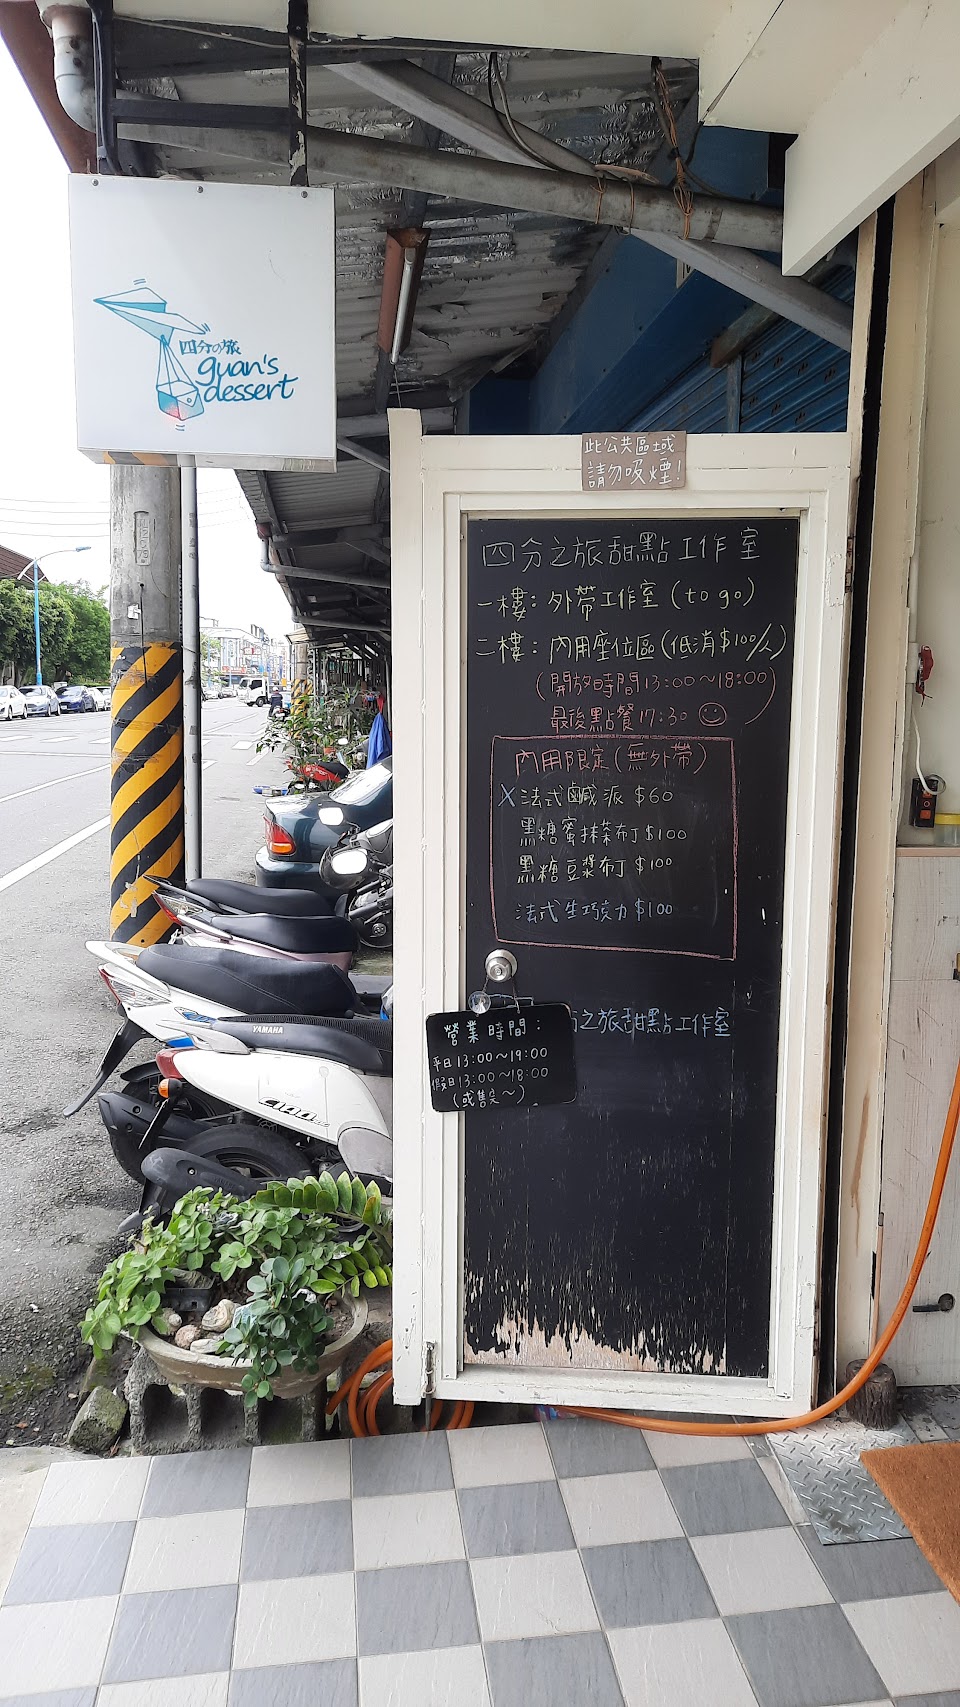 四分の旅
guan's
dessert
此公共區域
請勿吸煙!
四分之旅甜點工作室
一樓：外帶工作室(to go)
二樓：內用座位區(低消$100/人)
(開放時間13:00～18:00)
最後點餐17:30
內用限定(無外帶)
X法式鹹派 $60
黑糖蜜抹茶布丁$100
黑糖豆漿布丁 $100
法式生巧克力 $100
之旅甜點工作室
營業時間：
平日13:00～19:00
假日13:00～18:00
(或售完～)
YAMAHA